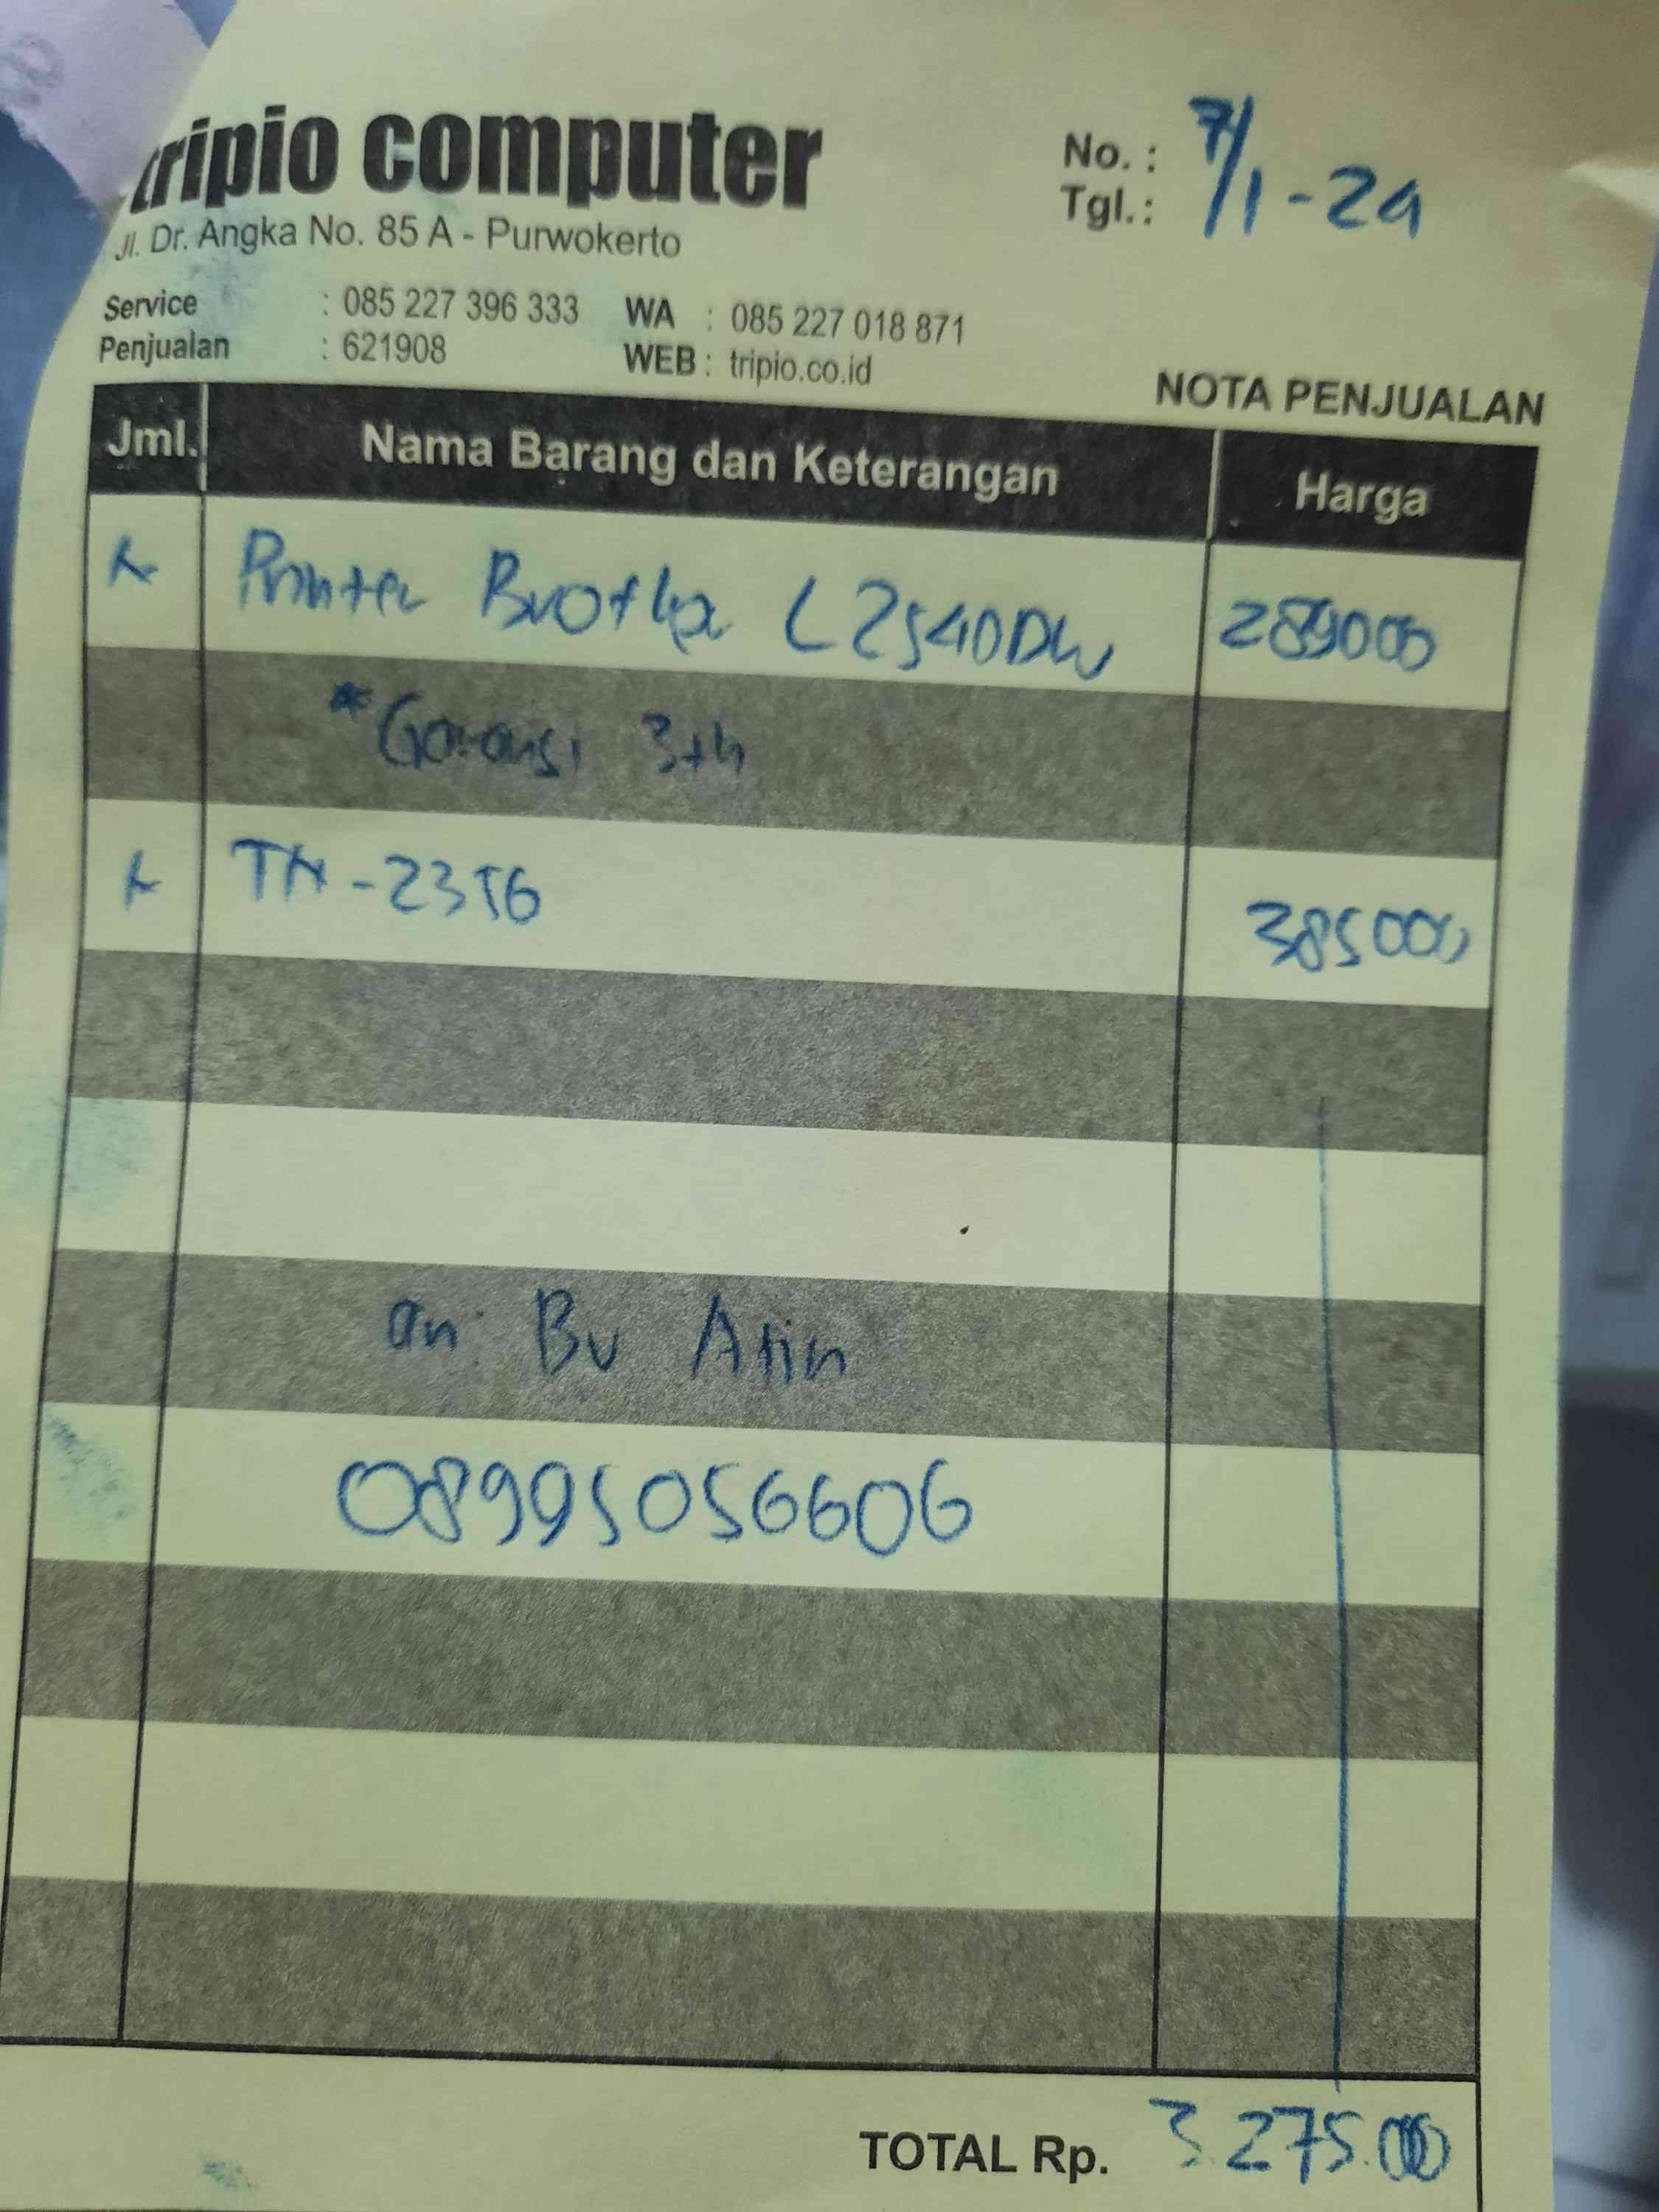 tripio computer
Jl. Dr. Angka No. 85 A - Purwokerto
No. :
Tgl. : 7/1-24
Service : 085 227 396 333 WA : 085 227 018 871
Penjualan : 621908 WEB : tripio.co.id
NOTA PENJUALAN
Jml. Nama Barang dan Keterangan Harga
1 Printer Brother L2540DW 289000
*Garansi 3th
1 TN-2356 385000
an. Bu Atin
08995056606
TOTAL Rp. 3.275.000